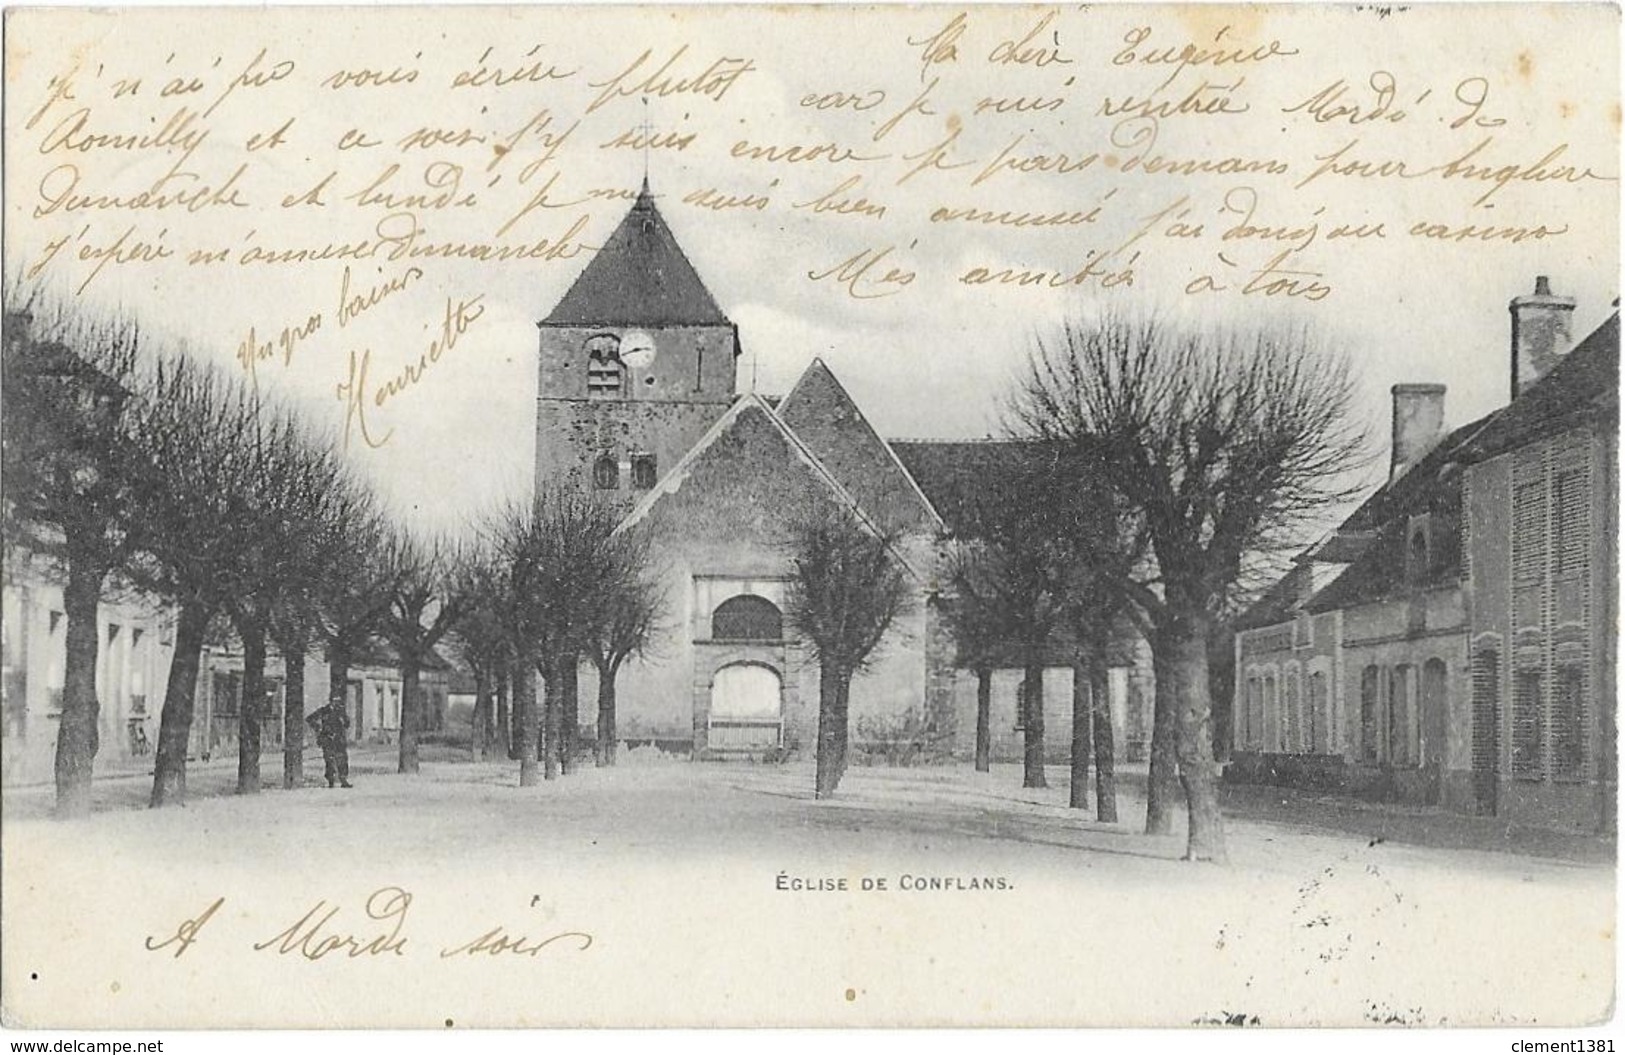 Ma chère Eugénie
Je n'ai pu vous écrire plutôt car je suis rentrée Mardi de
Romilly et ce soir j'y suis encore je pars demans pour Anglure
Dimanche et lundi je me suis bien amusée j'ai au casino
j'espère m'amuser Dimanche
Mes amitiés à tous
Un gros baiser
Henriette
ÉGLISE DE CONFLANS.
A Mardi soir
www.delcampe.net
clement1381